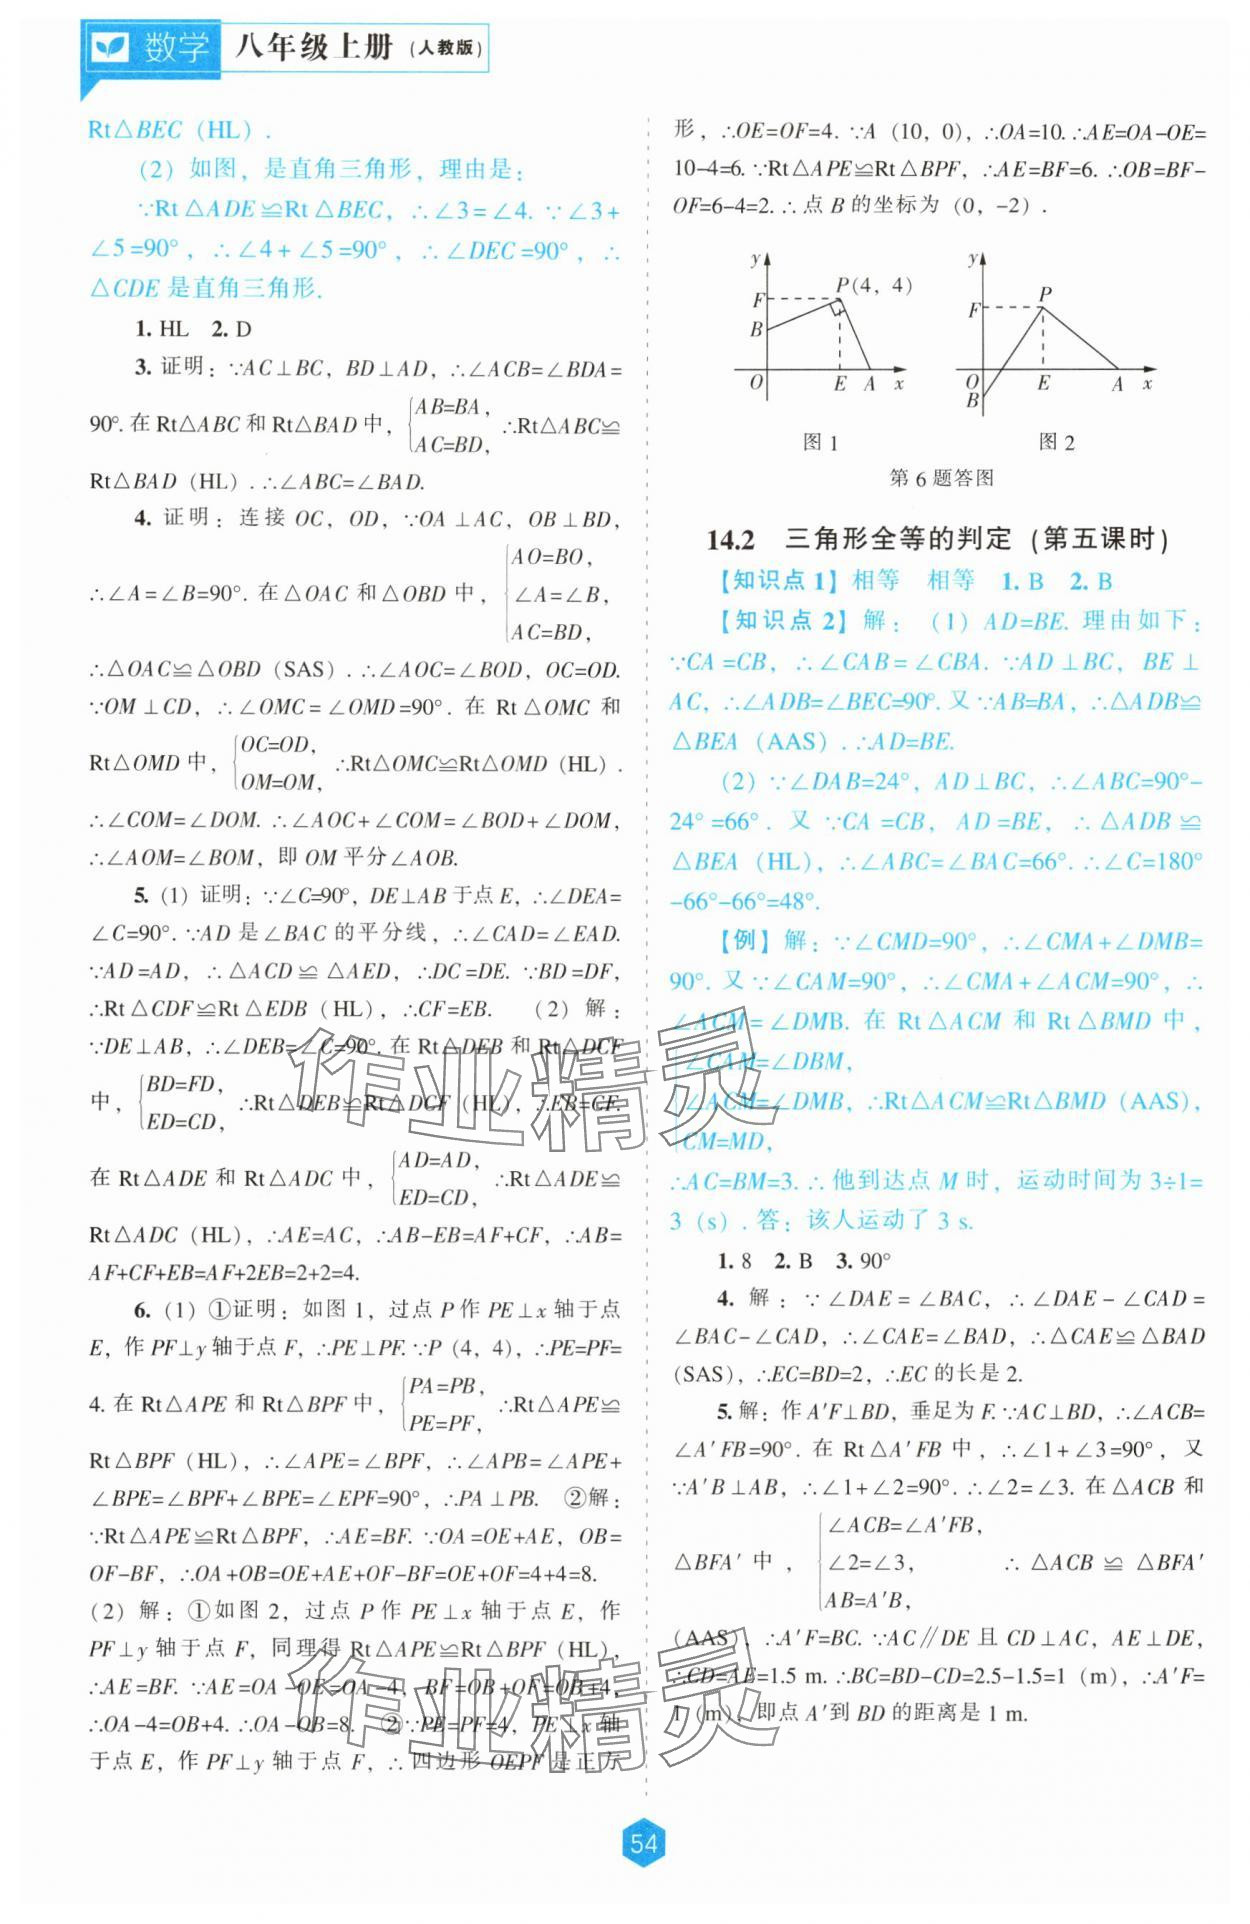 数学 八年级上册 (人教版)
Rt△BEC (HL) .
(2) 如图，是直角三角形，理由是：
∵Rt△ADE≌Rt△BEC，∴∠3=∠4. ∵∠3+
∠5=90°，∴∠4+∠5=90°，∴∠DEC=90°，∴
△CDE 是直角三角形.
1. HL 2. D
3. 证明：∵AC⊥BC，BD⊥AD，∴∠ACB=∠BDA=
90°. 在 Rt△ABC 和 Rt△BAD 中，{AB=BA，
AC=BD，∴Rt△ABC≌
Rt△BAD (HL) . ∴∠ABC=∠BAD.
4. 证明：连接 OC，OD，∵OA⊥AC，OB⊥BD，
∴∠A=∠B=90°. 在△OAC 和△OBD 中，{AO=BO，
∠A=∠B，
AC=BD，
∴△OAC≌△OBD (SAS) . ∴∠AOC=∠BOD，OC=OD.
∵OM⊥CD，∴∠OMC=∠OMD=90°. 在 Rt△OMC 和
Rt△OMD 中，{OC=OD，
OM=OM，∴Rt△OMC≌Rt△OMD (HL) .
∴∠COM=∠DOM. ∴∠AOC+∠COM=∠BOD+∠DOM，
∴∠AOM=∠BOM，即 OM 平分∠AOB.
5. (1) 证明：∵∠C=90°，DE⊥AB 于点 E，∴∠DEA=
∠C=90°. ∵AD 是∠BAC 的平分线，∴∠CAD=∠EAD.
∵AD=AD，∴△ACD≌△AED，∴DC=DE. ∵BD=DF，
∴Rt△CDF≌Rt△EDB (HL)，∴CF=EB. (2) 解：
∵DE⊥AB，∴∠DEB=∠C=90°. 在 Rt△DEB 和 Rt△DCF
中，{BD=FD，
ED=CD，∴Rt△DEB≌Rt△DCF (HL)，∴EB=CF.
在 Rt△ADE 和 Rt△ADC 中，{AD=AD，
ED=CD，∴Rt△ADE≌
Rt△ADC (HL)，∴AE=AC，∴AB-EB=AF+CF，∴AB=
AF+CF+EB=AF+2EB=2+2=4.
6. (1) ①证明：如图 1，过点 P 作 PE⊥x 轴于点
E，作 PF⊥y 轴于点 F，∴PE⊥PF. ∵P (4，4)，∴PE=PF=
4. 在 Rt△APE 和 Rt△BPF 中，{PA=PB，
PE=PF，∴Rt△APE≌
Rt△BPF (HL)，∴∠APE=∠BPF，∴∠APB=∠APE+
∠BPE=∠BPF+∠BPE=∠EPF=90°，∴PA⊥PB. ②解：
∵Rt△APE≌Rt△BPF，∴AE=BF. ∵OA=OE+AE，OB=
OF-BF，∴OA+OB=OE+AE+OF-BF=OE+OF=4+4=8.
(2) 解：①如图 2，过点 P 作 PE⊥x 轴于点 E，作
PF⊥y 轴于点 F，同理得 Rt△APE≌Rt△BPF (HL)，
∴AE=BF. ∵AE=OA-OE=OA-4，BF=OB+OF=OB+4，
∴OA-4=OB+4. ∴OA-OB=8. ②∵PE=PF=4，PE⊥x 轴
于点 E，作 PF⊥y 轴于点 F，∴四边形 OEPF 是正方
形，∴OE=OF=4. ∵A (10，0)，∴OA=10. ∴AE=OA-OE=
10-4=6. ∵Rt△APE≌Rt△BPF，∴AE=BF=6. ∴OB=BF-
OF=6-4=2. ∴点 B 的坐标为 (0，-2) .
y F B O E A x P(4，4)
图 1
y F P O B E A x
图 2
第 6 题答图
14.2 三角形全等的判定 (第五课时)
【知识点 1】相等 相等 1. B 2. B
【知识点 2】解：(1) AD=BE. 理由如下：
∵CA=CB，∴∠CAB=∠CBA. ∵AD⊥BC，BE⊥
AC，∴∠ADB=∠BEC=90°. 又∵AB=BA，∴△ADB≌
△BEA (AAS) . ∴AD=BE.
(2) ∵∠DAB=24°，AD⊥BC，∴∠ABC=90°-
24°=66°. 又∵CA=CB，AD=BE，∴△ADB≌
△BEA (HL)，∴∠ABC=∠BAC=66°. ∴∠C=180°
-66°-66°=48°.
【例】解：∵∠CMD=90°，∴∠CMA+∠DMB=
90°. 又∵∠CAM=90°，∴∠CMA+∠ACM=90°，∴
∠ACM=∠DMB. 在 Rt△ACM 和 Rt△BMD 中，
{∠CAM=∠DBM，
∠ACM=∠DMB，∴Rt△ACM≌Rt△BMD (AAS)，
CM=MD，
∴AC=BM=3. ∴他到达点 M 时，运动时间为 3÷1=
3 (s) . 答：该人运动了 3 s.
1. 8 2. B 3. 90°
4. 解：∵∠DAE=∠BAC，∴∠DAE-∠CAD=
∠BAC-∠CAD，∴∠CAE=∠BAD，∴△CAE≌△BAD
(SAS)，∴EC=BD=2，∴EC 的长是 2.
5. 解：作 A′F⊥BD，垂足为 F. ∵AC⊥BD，∴∠ACB=
∠A′FB=90°. 在 Rt△A′FB 中，∴∠1+∠3=90°，又
∵A′B⊥AB，∴∠1+∠2=90°. ∴∠2=∠3. 在△ACB 和
△BFA′ 中，{∠ACB=∠A′FB，
∠2=∠3，
AB=A′B，∴△ACB≌△BFA′
(AAS)，∴A′F=BC. ∵AC∥DE 且 CD⊥AC，AE⊥DE，
∴CD=AE=1.5 m. ∴BC=BD-CD=2.5-1.5=1 (m)，∴A′F=
1 (m)，即点 A′到 BD 的距离是 1 m.
作业精灵
作业精灵
54